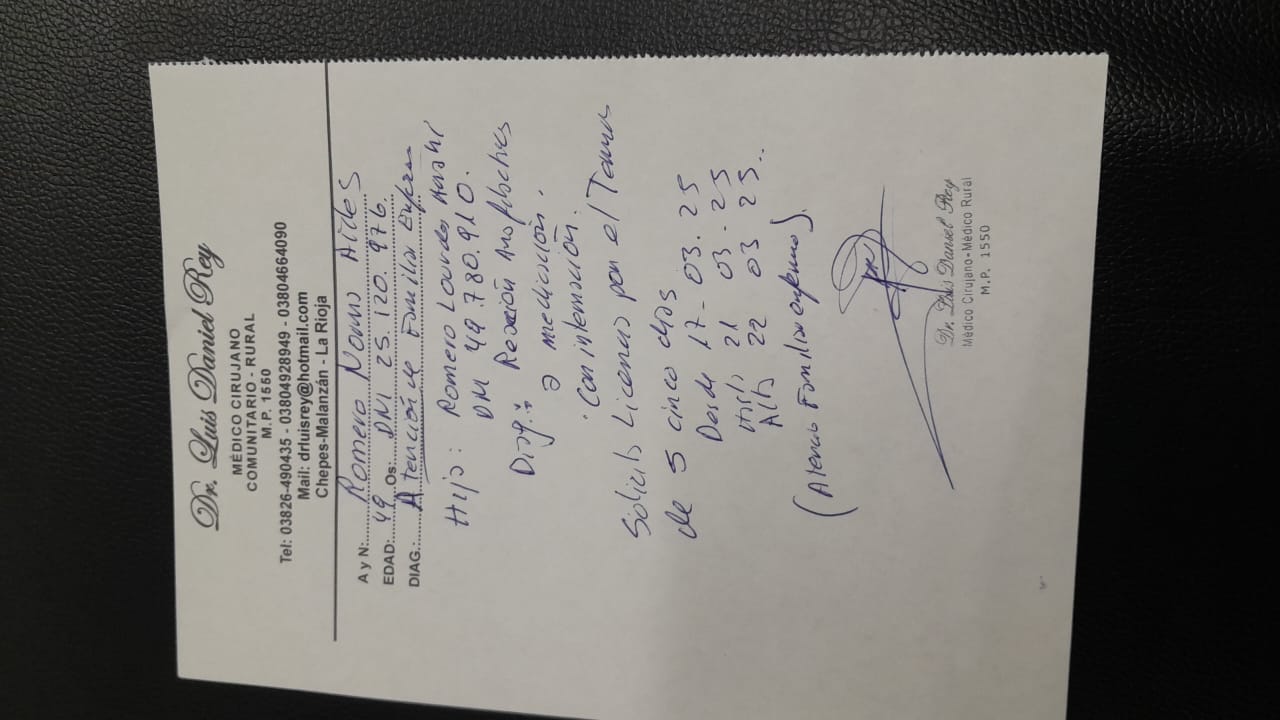 Dr. Luis Daniel Rey
MÉDICO CIRUJANO
COMUNITARIO - RURAL
M.P. 1550
Tel: 03826-490435 - 03804928949 - 03804664090
Mail: drluisrey@hotmail.com
Chepes-Malanzán - La Rioja
A y N: Romero Norma Aides
EDAD: 49 Os: DNI 25.120.976.
DIAG.: Atención de Familiar
Hijo: Romero Lourdes
DNI 49.780.910.
Diag.: Reacción
a medicación.
Con internación.
Solicito Licencia por el
de 5 cinco días
Desde 17-03.25
21 03-25
Alta 22 03 25..
(Atención Familiar enfermo).
Dr. Luis Daniel Rey
Médico Cirujano-Médico Rural
M.P. 1550